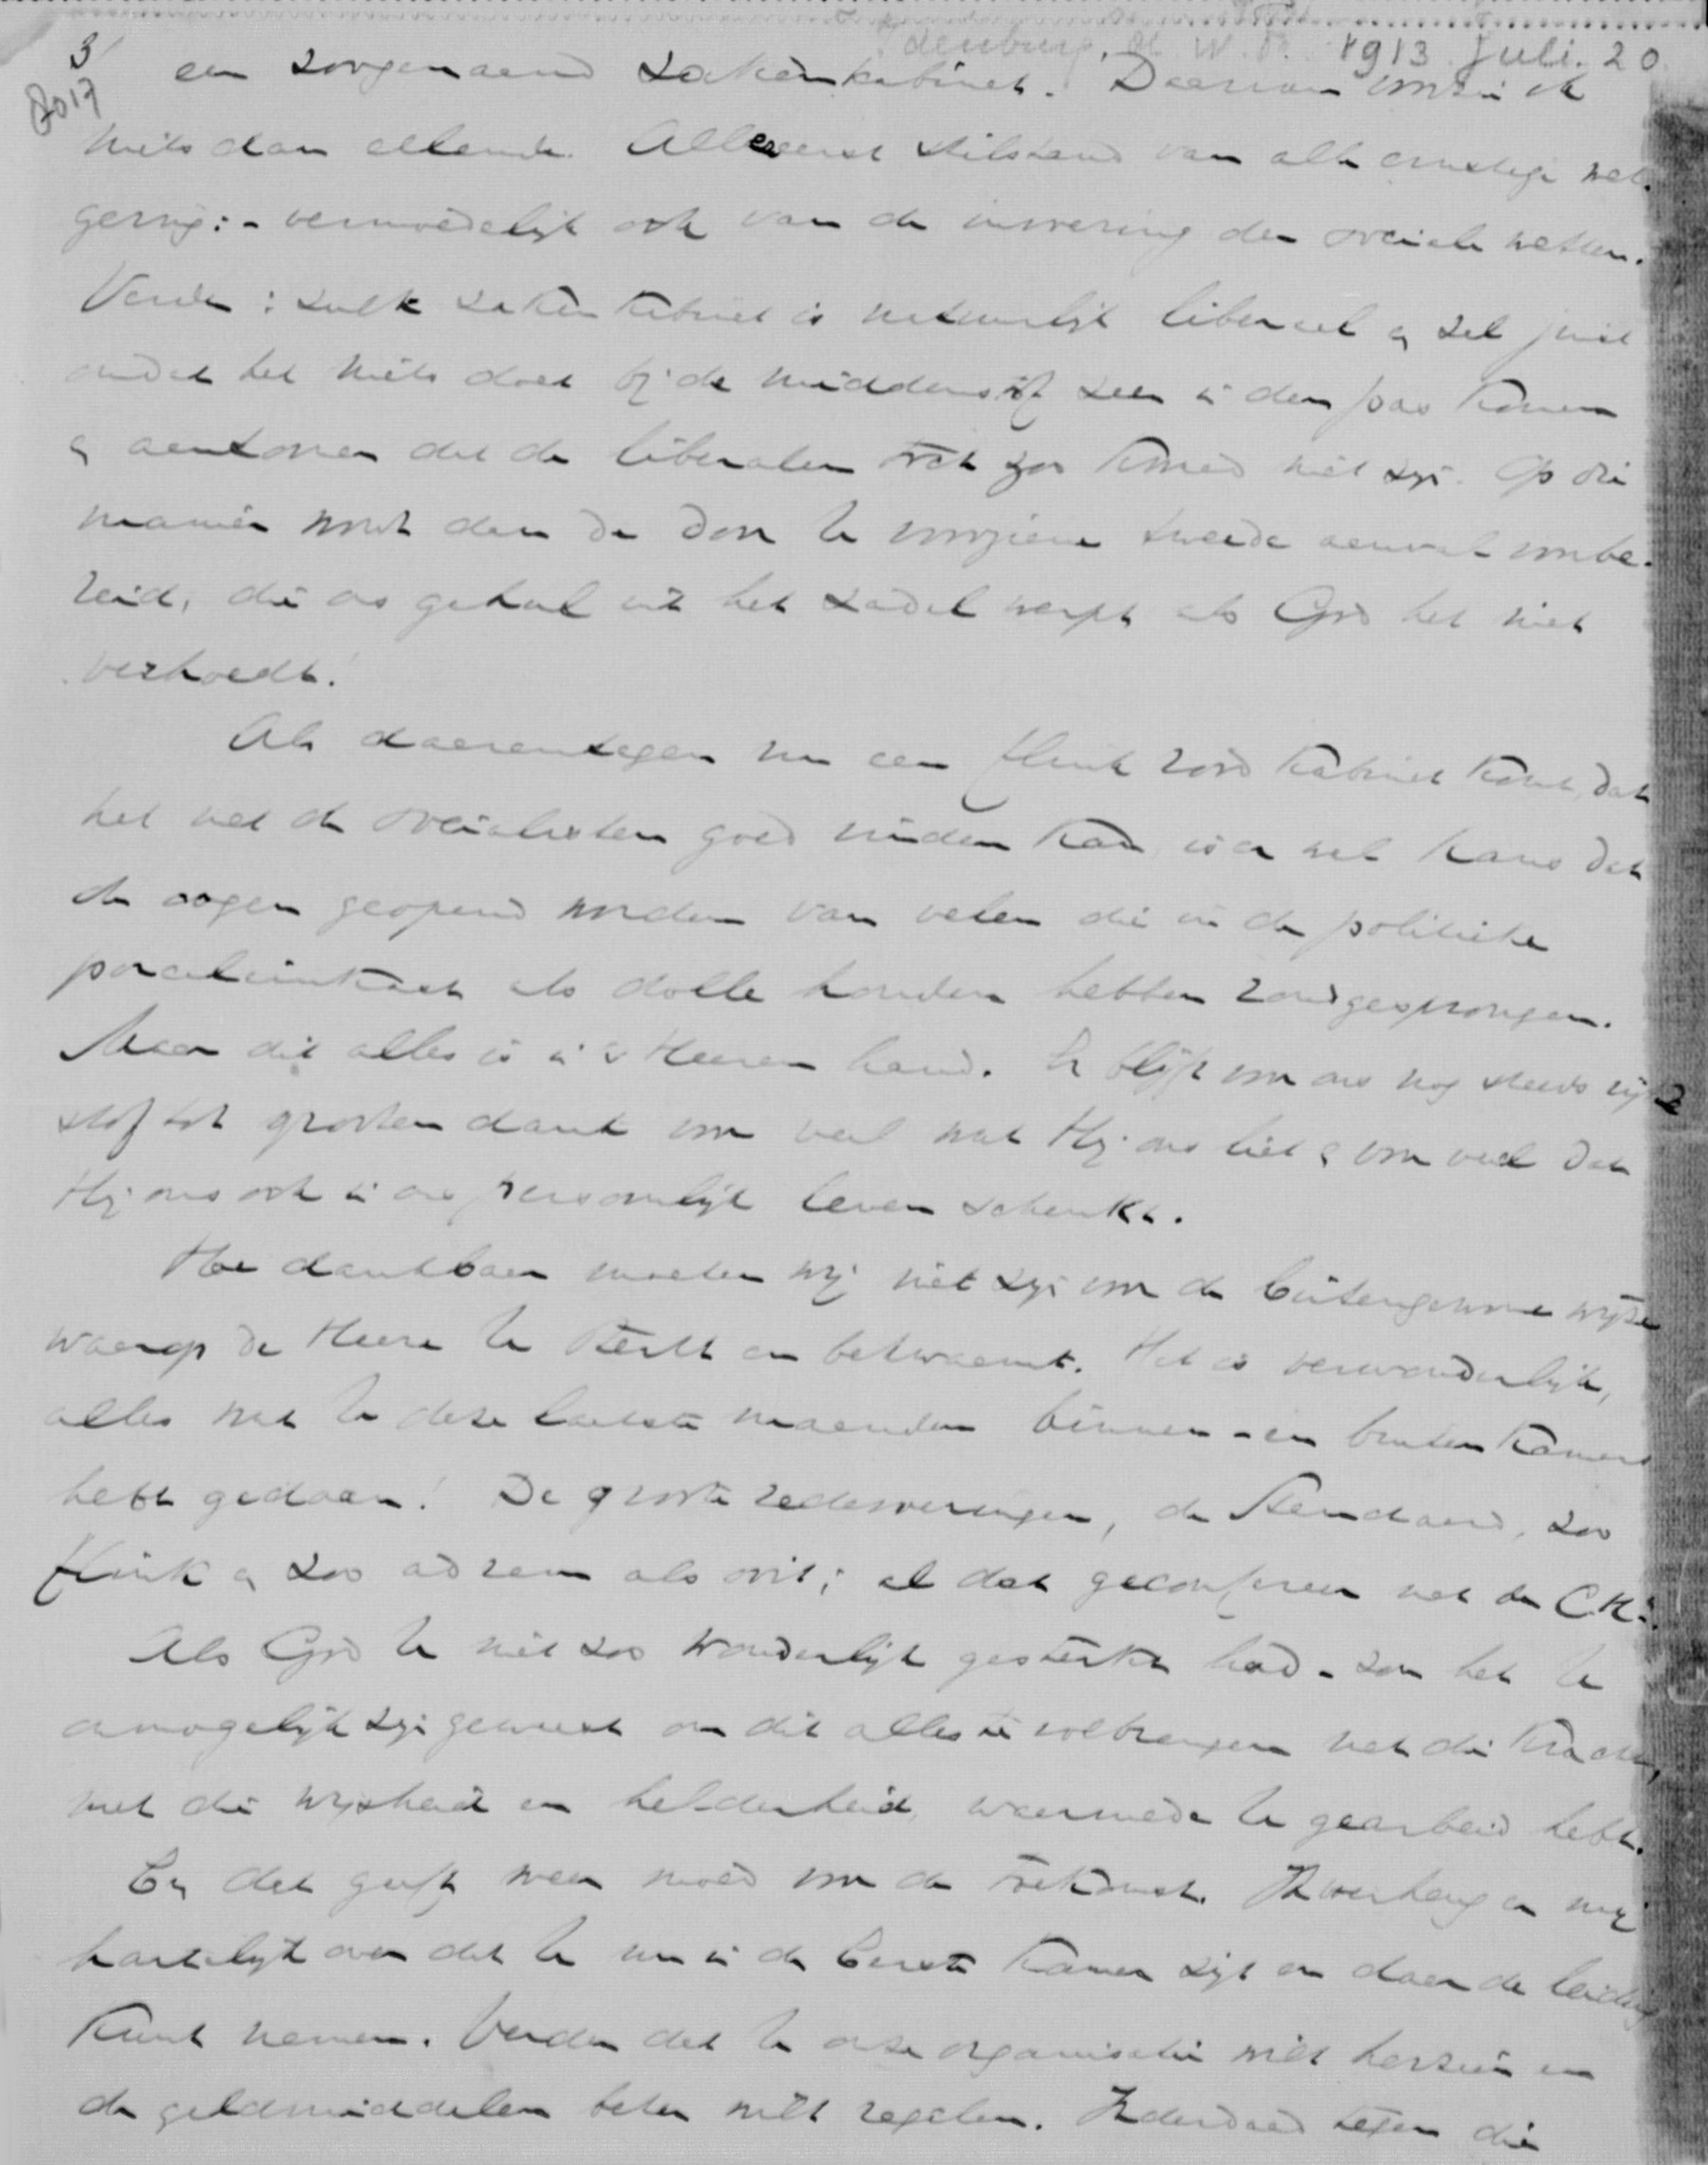 Idenburg, A. W. F. 1913 Juli. 20
3
8017
een zoogenaamd zakenkabinet. Daarvan voorzie ik
niets dan ellende. Allereerst stilstand van alle ernstige wet-
geving: - vermoedelijk ook van de invoering der sociale wetten.
Verder: zulk zakenkabinet is natuurlijk liberaal en zal juist
omdat het niets doet bij de middenstof zeer in den pas komen
en aantoonen dat de liberalen toch zoo kwaad niet zijn. Op die
manier wordt dan de door U voorziene tweede aanval voorbe-
reid, die ons geheel uit het zadel werpt als God het niet
verhoedt!
Als daarentegen nu een flink rood kabinet komt, dat
het met de socialisten goed vinden kan, is er wel kans dat
de oogen geopend worden van velen die in de politieke
porceleinkast als dolle honden hebben rondgesprongen.
Maar dit alles is in 's Heeren hand. Er blijft voor ons nog steeds rijke
stof tot grooten dank voor veel wat Hij ons liet en voor veel dat
Hij ons ook in ons persoonlijk leven schenkt.
Hoe dankbaar moeten wij niet zijn voor de buitengewone wijze
waarop de Heere U sterkt en bekwaamt. Het is verwonderlijk,
alles wat U deze laatste maanden binnen- en buitenkamers
hebt gedaan! De groote redevoeringen, de Standaard, zoo
flink en zoo ad rem als ooit; al dat geconfereer met de C.H.
Als God U niet zoo wonderlijk gesterkt had - zou het U
onmogelijk zijn geweest om dit alles te volbrengen met die kracht,
met die wijsheid en helderheid, waarmede U gearbeid hebt.
En dat geeft weer moed voor de toekomst. Ik verheug er mij
hartelijk over dat U nu in de Eerste Kamer zijt en daar de leiding
kunt nemen. Verder dat U onze organisatie wilt herzien en
de geldmiddelen beter wilt regelen. Inderdaad tegen die